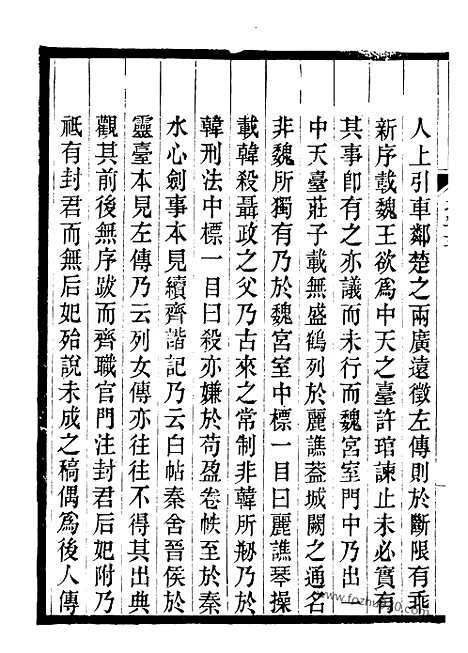 人上引車鄰楚之兩廣遠徵左傳則於斷限有乖
新序載魏王欲爲中天之臺許琯諫止未必實有
其事卽有之亦議而未行而魏宮室門中乃出一
中天臺莊子載無盛鶴列於麗譙葢城闕之通名
非魏所獨有乃於魏宮室中標一目曰麗譙琴操
載韓殺聶政之父乃古來之常制非韓所剏乃於
韓刑法中標一目曰殺亦嫌於苟盈卷帙至於秦
水心劍事本見續齊諧記乃云白帖秦舍晉侯於
靈臺本見左傳乃云列女傳亦往往不得其出典
觀其前後無序跋而齊職官門注封君后妃附乃
祗有封君而無后妃殆說未成之稿偶爲後人傳
www.fozhu920.com